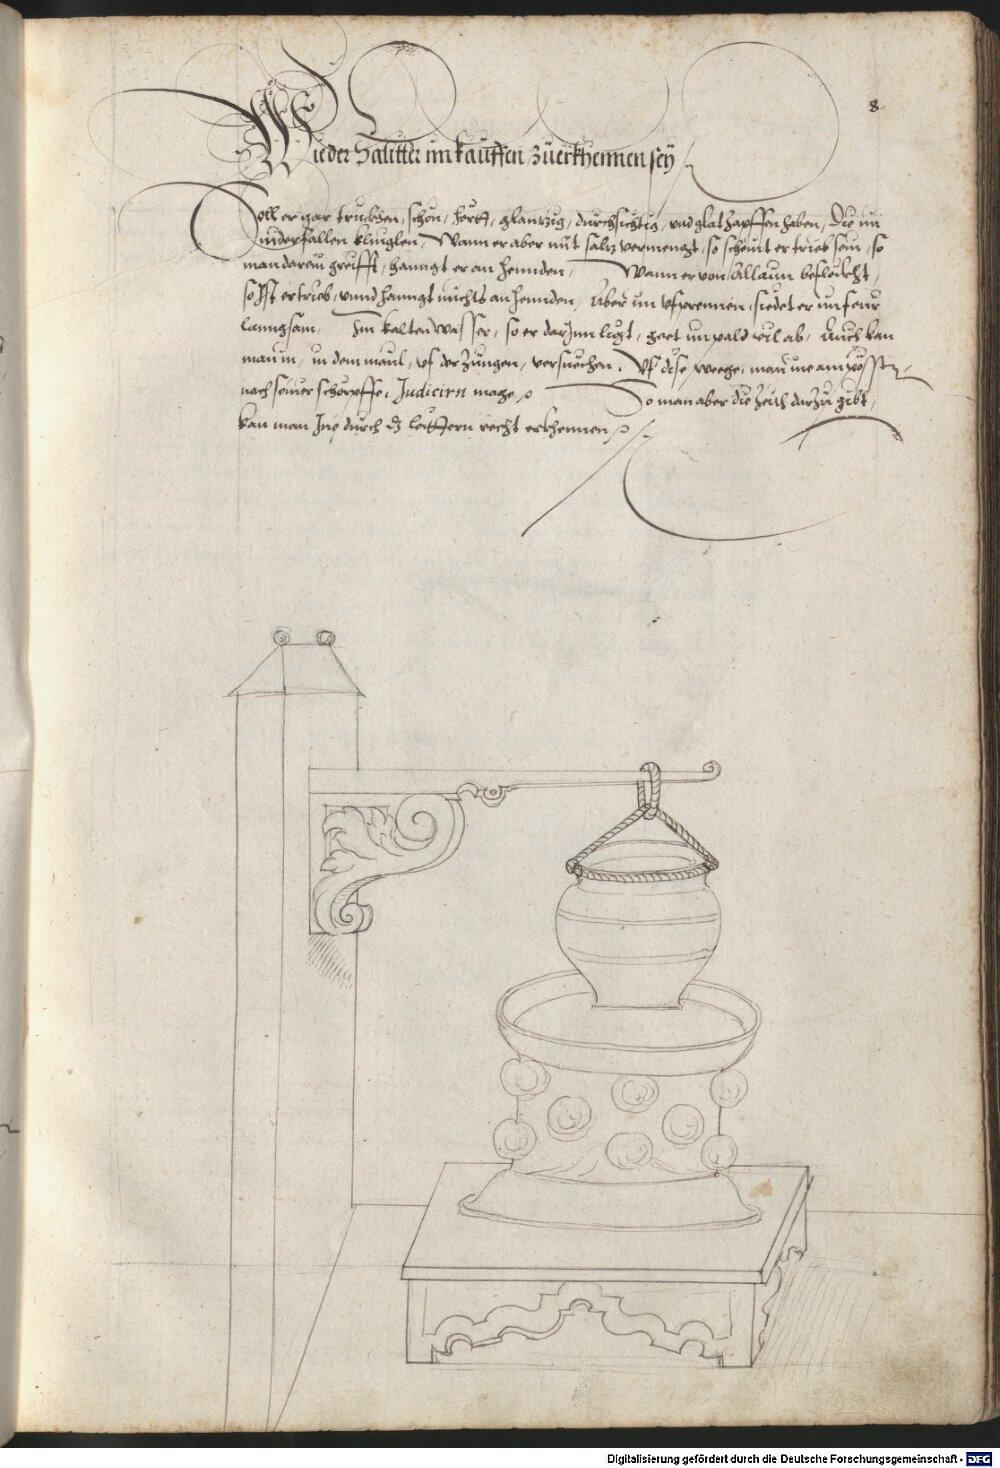 8
Wie der Salitter im kauffen zuerkhennen sey
Soll er gar truckhen, schön, hörtt, glantzig, durchsichtig, und glat Zapffen haben, Die im
niderfallen klinglen, Wann er aber mit saltz vermengt, so scheint er trieb sein, so
man darein greifft, hanngt er an hennden, Wann er von Allaun befleckht,
so Ist er trieb, unnd hanngt nichts an hennden, Aber im verprennen, siedet er im feur
lanngsam, Im kalten wasser, so er darInn ligt, geet im pald vil ab, Auch kan
man in, in dem maul, uf der Zungen, versuechen. Uf dise weege, man ine am
nach seiner schörpffe, Iudiciern mage So man aber die Zeuh darZu gibt,
kan man Ine durch dz leüttern recht erkhennen
Digitalisierung gefördert durch die Deutsche Forschungsgemeinschaft - DFG